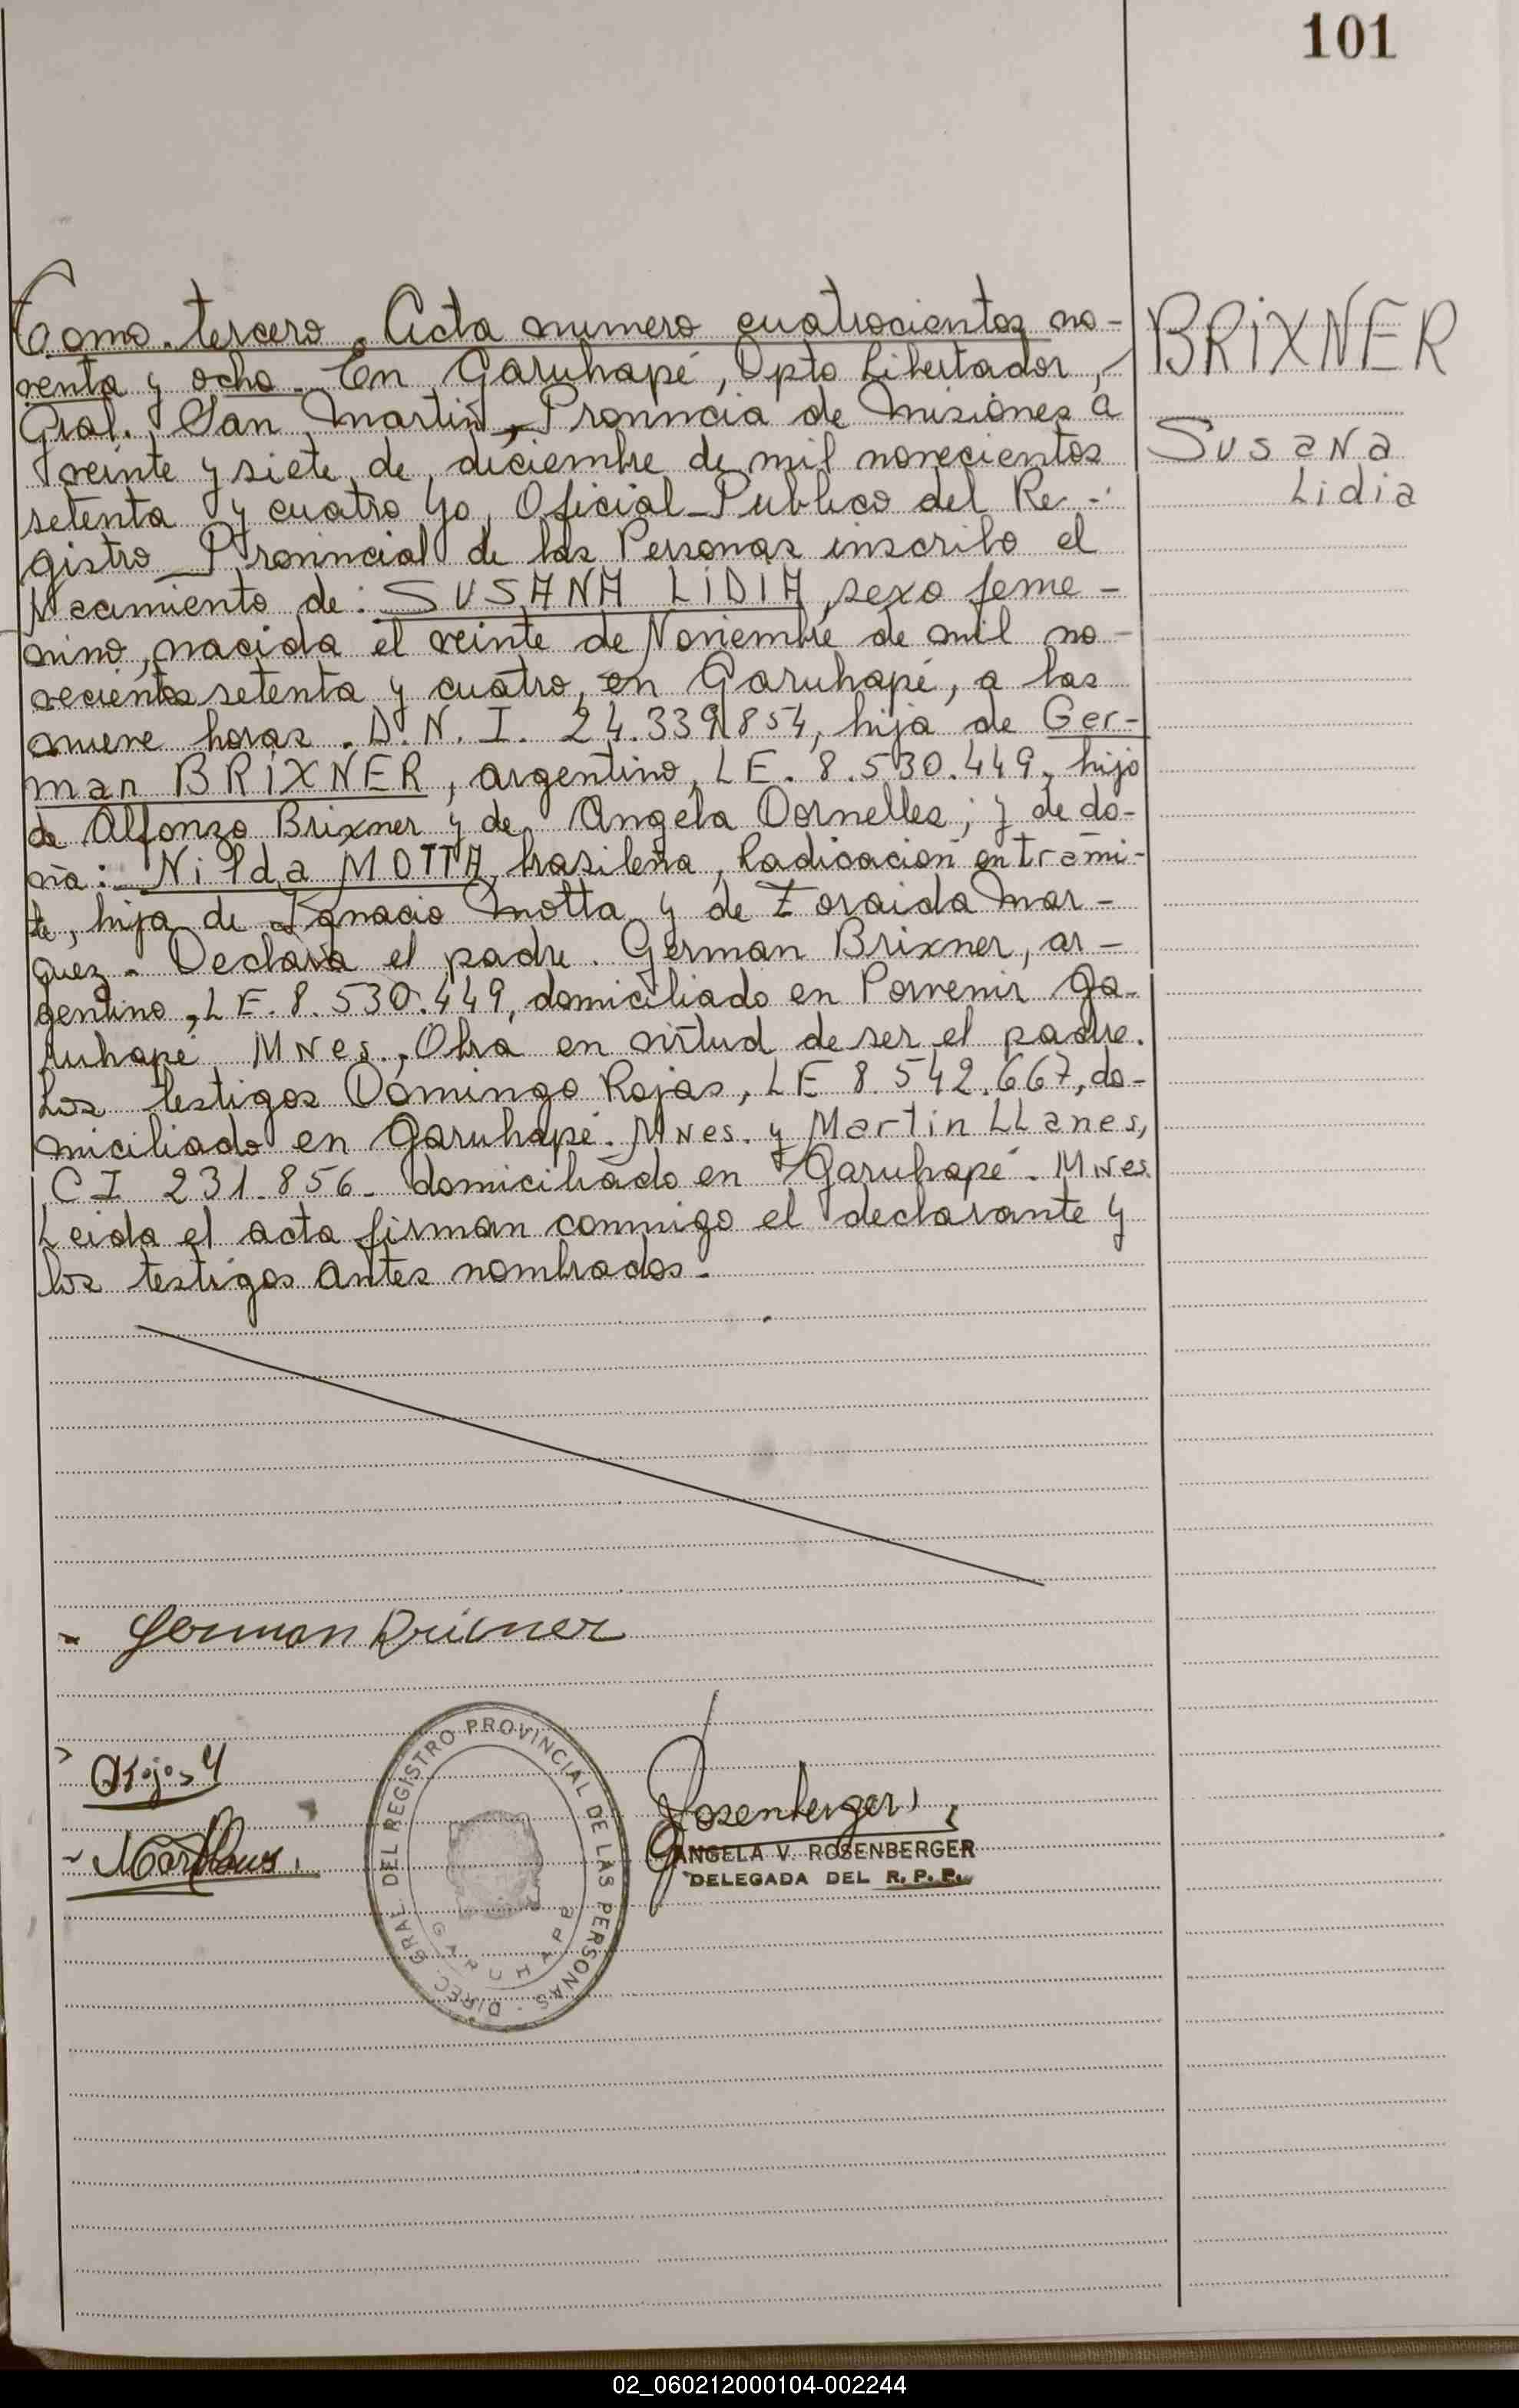 101
Tomo tercero. Acta numero cuatrocientos no-
venta y ocho. En Garuhapé, Dpto Libertador,
Gral. San Martin, Provincia de Misiones a
veinte y siete de diciembre de mil novecientos
setenta y cuatro Yo, Oficial Publico del Re-
gistro Provincial de las Personas inscribo el
Nacimiento de: SUSANA LIDIA, sexo feme-
nino, nacida el veinte de Noviembre de mil no-
vecientos setenta y cuatro, en Garuhapé, a las
nueve horas. D.N.I. 24.339.854, hija de Ger-
man BRIXNER, argentino, LE. 8.530.449, hijo
de Alfonzo Brixner y de Angela Dornelles; y de do-
ña: Nilda MOTTA, brasileña, Radicación en trami-
te, hija de Ignacio Motta y de Zoraida Mar-
quez. Declara el padre. German Brixner, ar-
gentino, LE. 8.530.449, domiciliado en Porvenir Ga-
ruhapé Mnes., Obra en virtud de ser el padre.
Los testigos Domingo Rojas, LE 8.542.667, do-
miciliado en Garuhapé. Mnes. y Martin LLanes,
CI 231.856. domiciliado en Garuhapé. Mnes.
Leida el acta firman conmigo el declarante y
los testigos antes nombrados.
BRIXNER
Susana
Lidia
German Brixner
Rosenberger
ANGELA V. ROSENBERGER
DELEGADA DEL R. P. P.
DIREC. GRAL. DEL REGISTRO PROVINCIAL DE LAS PERSONAS
GARUHAPE
02_060212000104-002244